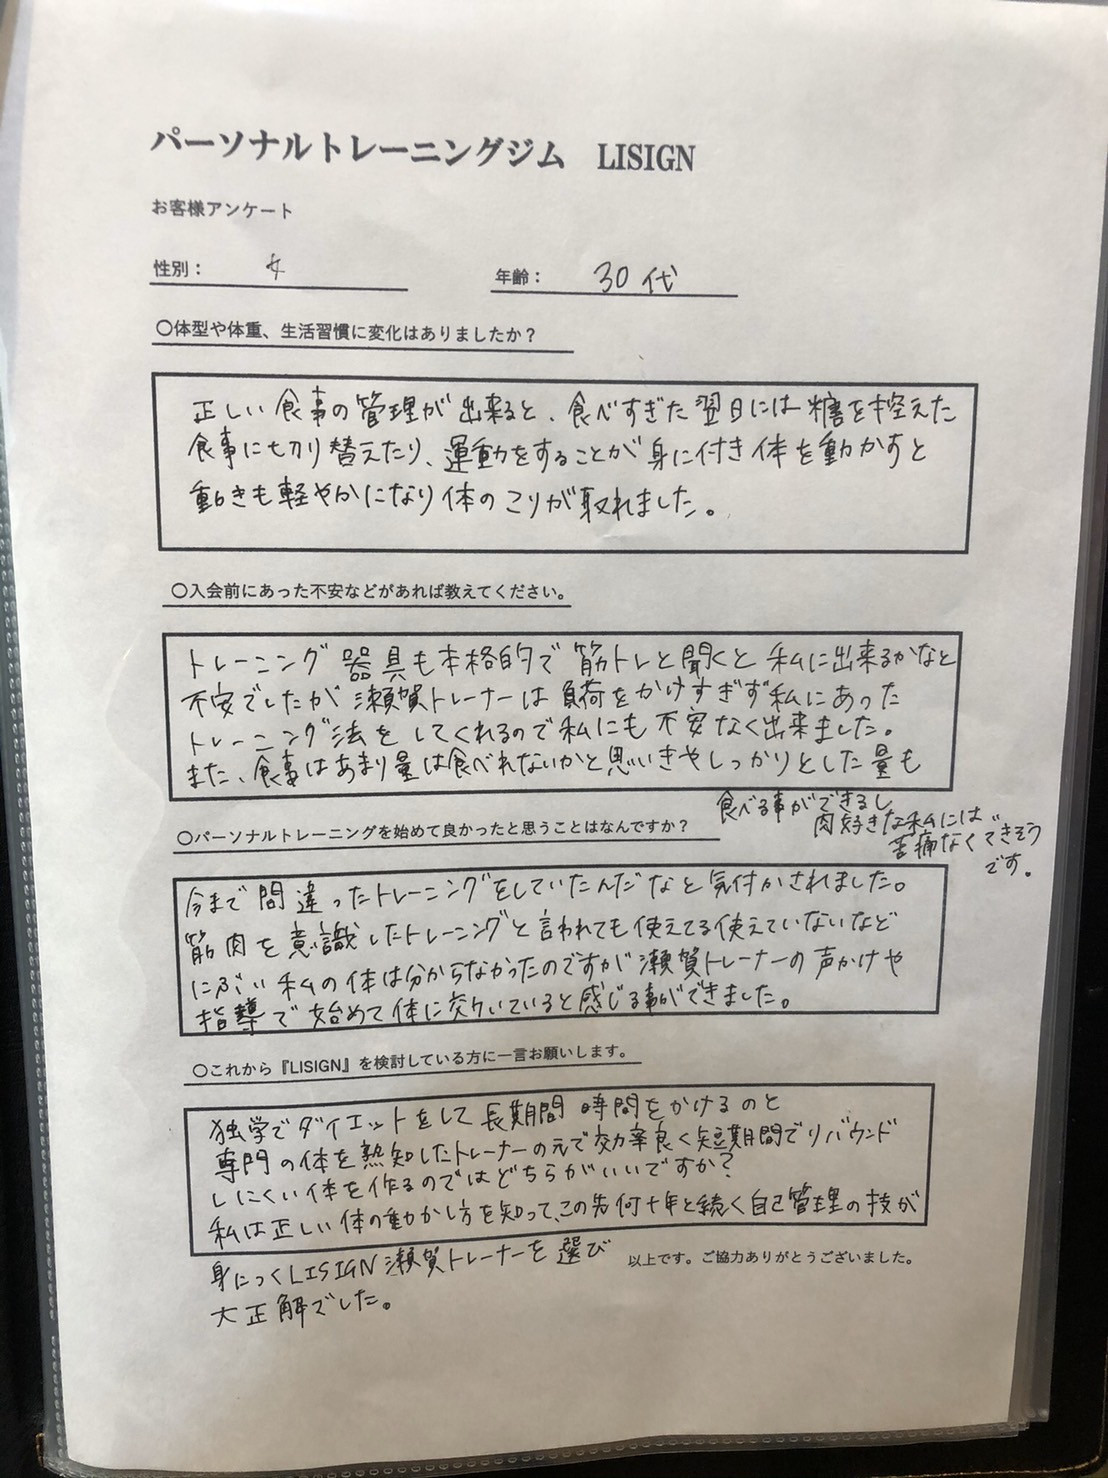 パーソナルトレーニングジム　LISIGN
お客様アンケート
性別： 女
年齢： 30代
〇体型や体重、生活習慣に変化はありましたか？
正しい食事の管理が出来ると、食べすぎた翌日には糖を控えた
食事に切り替えたり、運動をすることが身に付き体を動かすと
動きも軽やかになり体のこりが取れました。
〇入会前にあった不安などがあれば教えてください。
トレーニング器具も本格的で筋トレと聞くと私に出来るかなと
不安でしたが瀬賀トレーナーは負荷をかけすぎず私にあった
トレーニング法をしてくれるので私にも不安なく出来ました。
また、食事はあまり量は食べれないかと思いきやしっかりとした量も
食べる事ができるし
肉好きな私には
苦痛なくできそう
です。
〇パーソナルトレーニングを始めて良かったと思うことはなんですか？
今まで間違ったトレーニングをしていたんだなと気付かされました。
筋肉を意識したトレーニングと言われても使えてる使えていないなど
にぶい私の体は分からなかったのですが瀬賀トレーナーの声かけや
指導で始めて体に効いていると感じる事ができました。
〇これから『LISIGN』を検討している方に一言お願いします。
独学でダイエットをして長期間時間をかけるのと
専門の体を熟知したトレーナーの元で効率良く短期間でリバウンド
しにくい体を作るのではどちらがいいですか？
私は正しい体の動かし方を知って、この先何十年と続く自己管理の技が
身につくLISIGN瀬賀トレーナーを選び
大正解でした。
以上です。ご協力ありがとうございました。